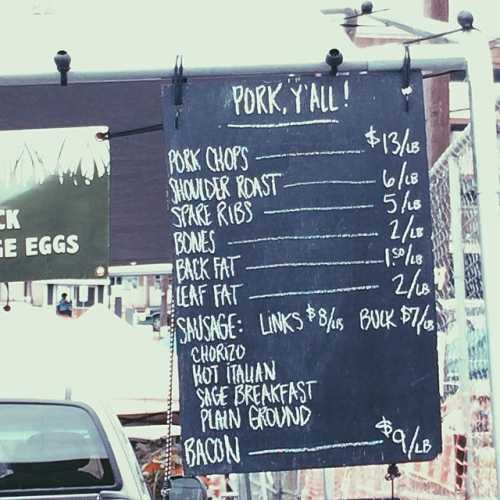 PORK, Y'ALL!
PORK CHOPS $13/LB
SHOULDER ROAST 6/LB
SPARE RIBS 5/LB
BONES 2/LB
BACK FAT 1.50/LB
LEAF FAT 2/LB
SAUSAGE: LINKS $8/LB BULK $7/LB
CHORIZO
HOT ITALIAN
SAGE BREAKFAST
PLAIN GROUND
BACON $9/LB
CK
GE EGGS